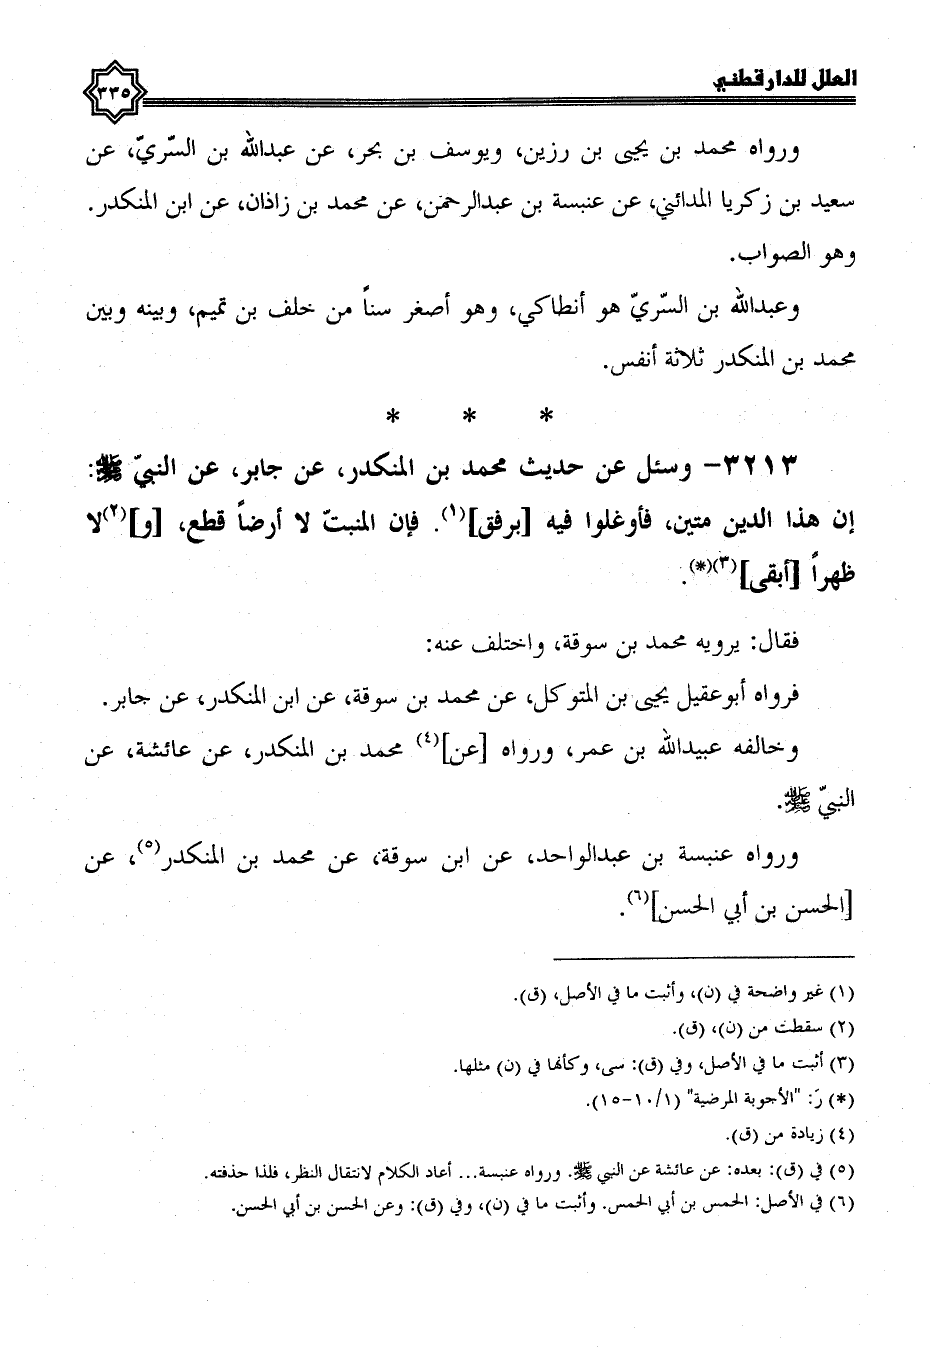 العلل للدارقطني
٣٣٥
ورواه محمد بن يحيى بن رزين، ويوسف بن بحر، عن عبدالله بن السّريّ، عن
سعيد بن زكريا المدائني، عن عنبسة بن عبدالرحمن، عن محمد بن زاذان، عن ابن المنكدر.
وهو الصواب.
وعبدالله بن السّريّ هو أنطاكي، وهو أصغر سناً من خلف بن تميم، وبينه وبين
محمد بن المنكدر ثلاثة أنفس.
* * *
٣٢١٣- وسئل عن حديث محمد بن المنكدر، عن جابر، عن النبيّ ﷺ:
إن هذا الدين متين، فأوغلوا فيه [برفق](١). فإن المنبتّ لا أرضاً قطع، [و](٢)لا
ظهراً [أبقى](٣)(*).
فقال: يرويه محمد بن سوقة، واختلف عنه:
فرواه أبوعقيل يحيى بن المتوكل، عن محمد بن سوقة، عن ابن المنكدر، عن جابر.
وخالفه عبيدالله بن عمر، ورواه [عن](٤) محمد بن المنكدر، عن عائشة، عن
النبيّ ﷺ.
ورواه عنبسة بن عبدالواحد، عن ابن سوقة، عن محمد بن المنكدر(٥)، عن
[الحسن بن أبي الحسن](٦).
(١) غير واضحة في (ن)، وأثبت ما في الأصل، (ق).
(٢) سقطت من (ن)، (ق).
(٣) أثبت ما في الأصل، وفي (ق): سى، وكأنها في (ن) مثلها.
(*) رَ: "الأجوبة المرضية" (١/ ١٠-١٥).
(٤) زيادة من (ق).
(٥) في (ق): بعده: عن عائشة عن النبي ﷺ. ورواه عنبسة... أعاد الكلام لانتقال النظر، فلذا حذفته.
(٦) في الأصل: الحمس بن أبي الحمس. وأثبت ما في (ن)، وفي (ق): وعن الحسن بن أبي الحسن.